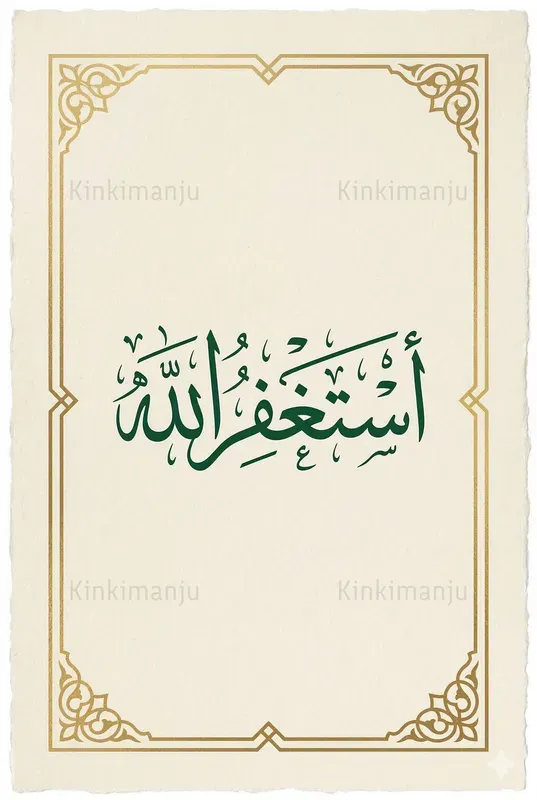 Kinkimanju Kinkimanju
أَسْتَغْفِرُ اللَّه
Kinkimanju Kinkimanju